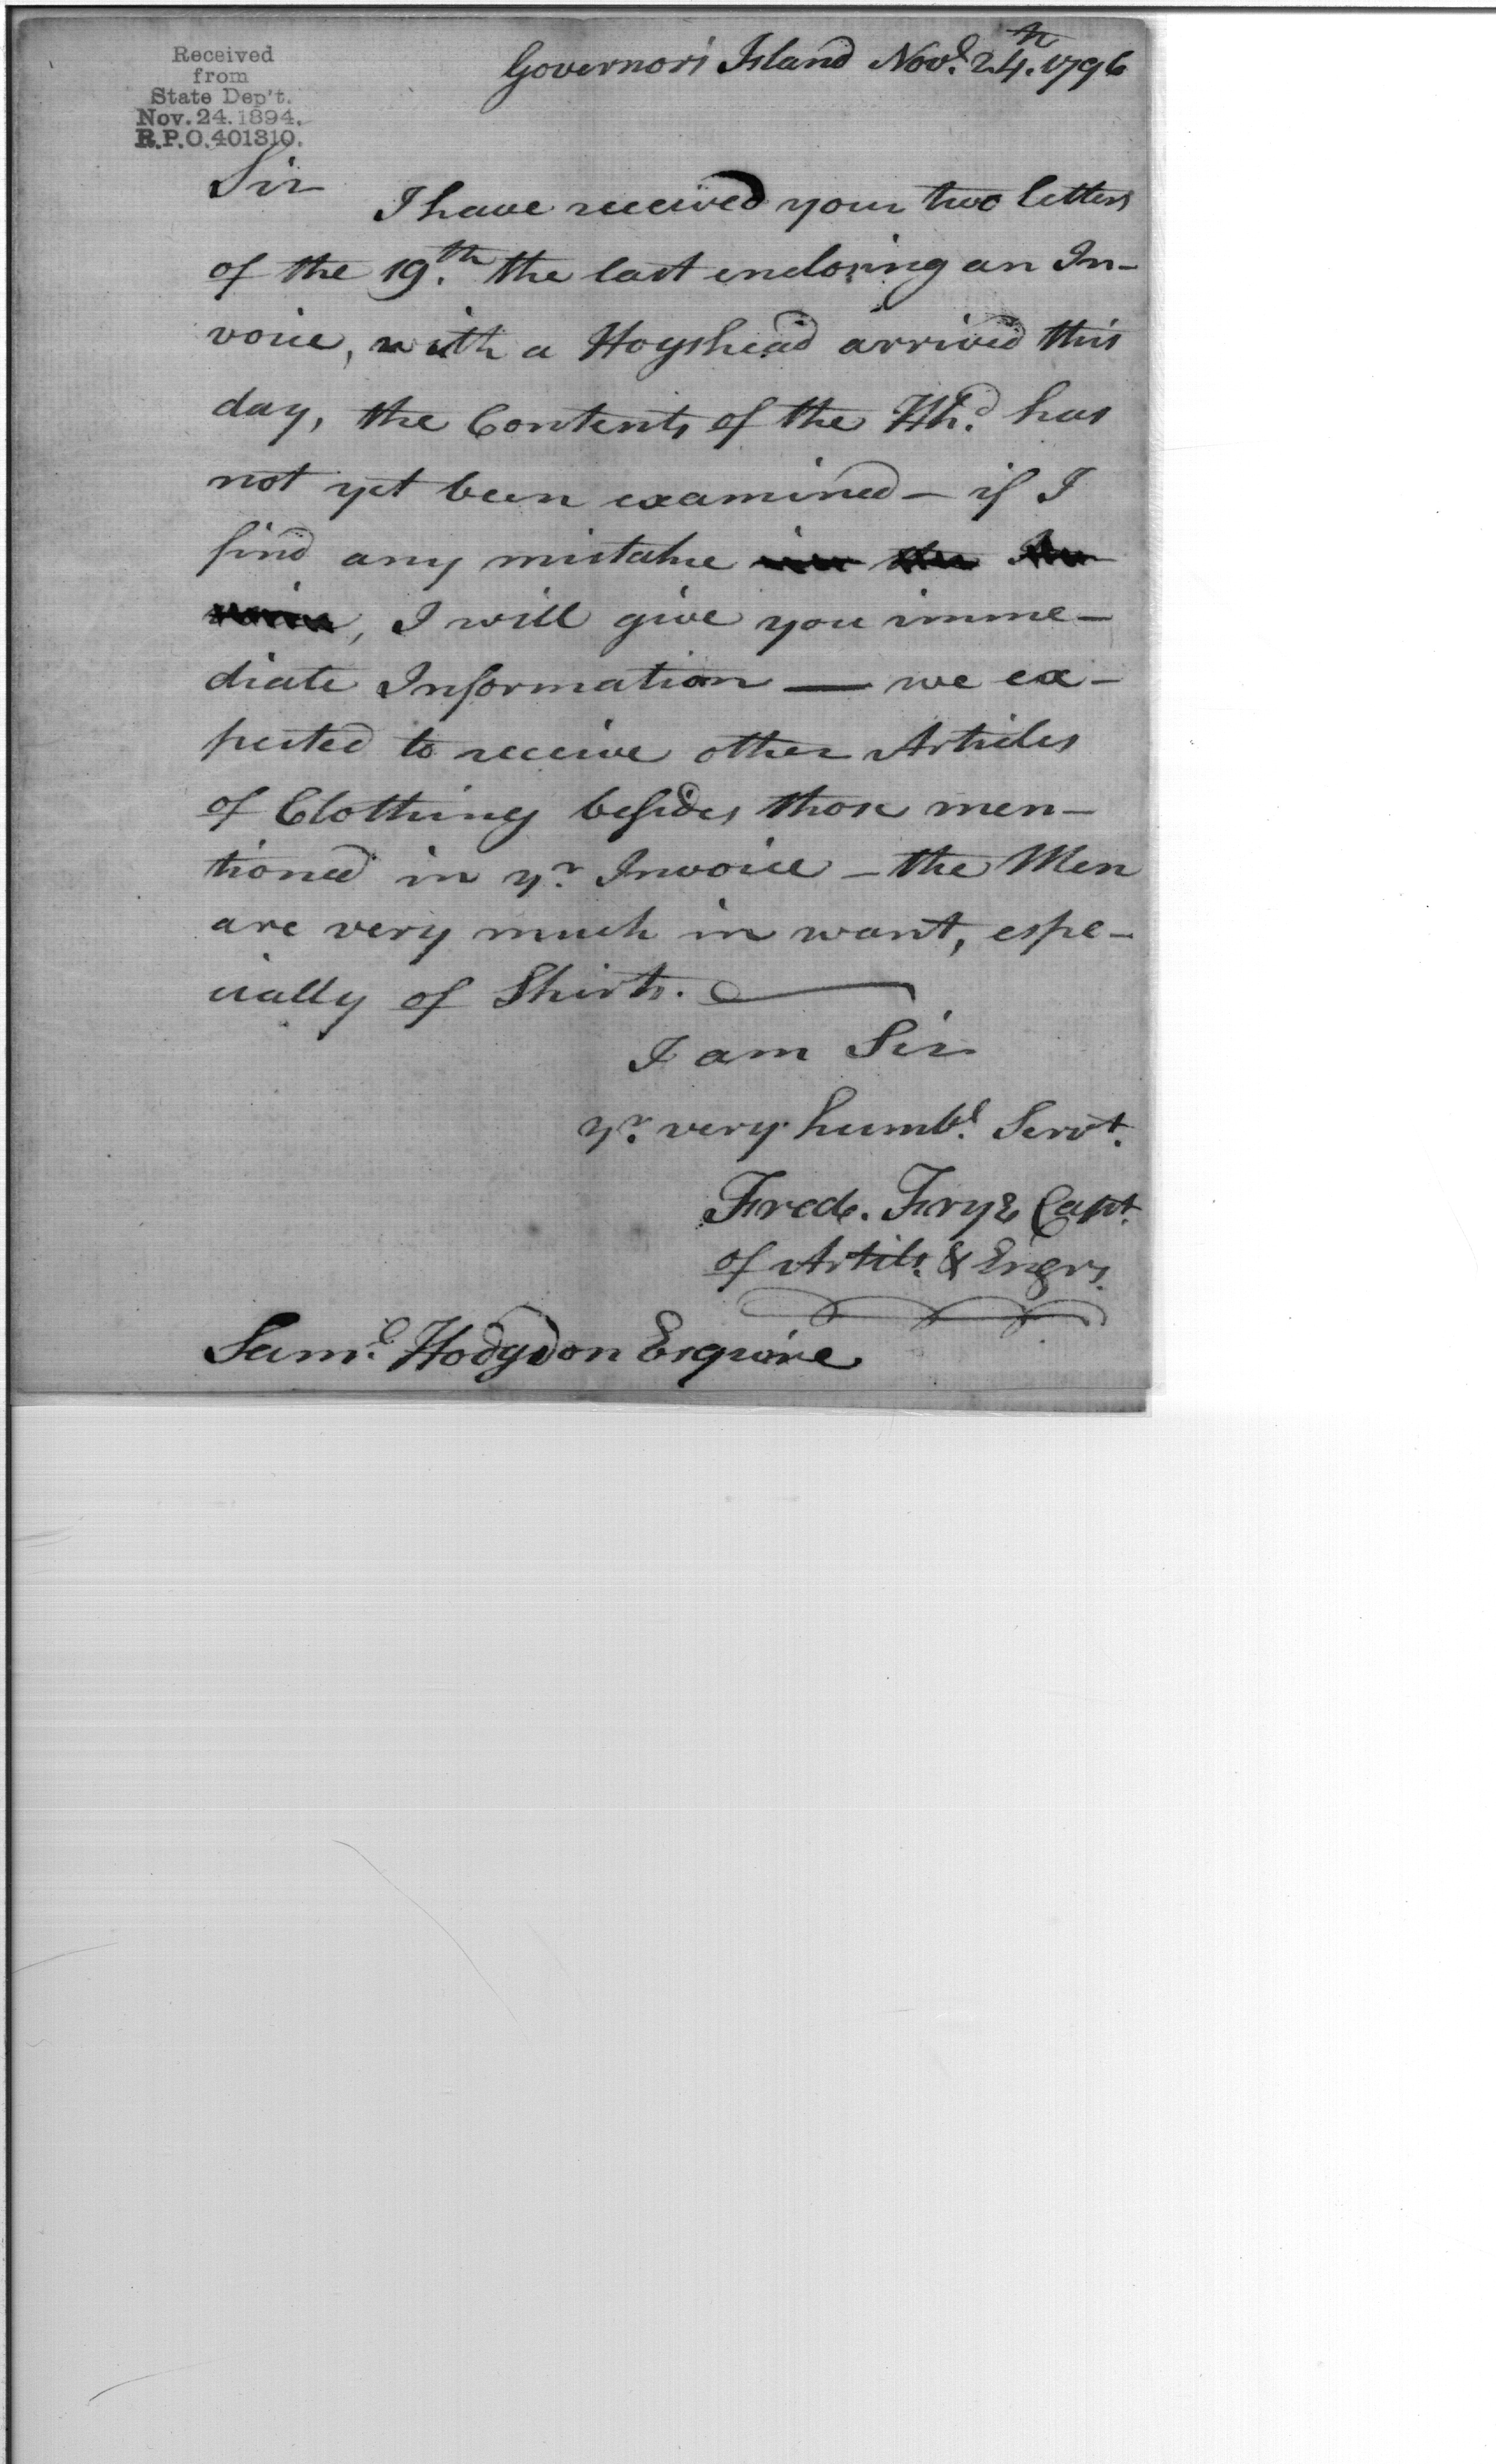 Received
from
State Dep't.
Nov. 24. 1894.
R.P.O. 401310.
Governor's Island Novr. 24.th 1796
Sir
I have received your two letters
of the 19.th the last enclosing an In-
voice, with a Hogshead arrived this
day, the Contents of the Hhd. has
not yet been examined - if I
find any mistake
, I will give you imme-
diate Information — we ex-
pected to receive other Articles
of Clothing besides those men-
tioned in yr. Invoice - the Men
are very much in want, espe-
cially of Shirts.
I am Sir
yr. very humbl. Servt.
Fredk. Frye Capt.
of Artils. & Engrs.
Saml. Hodgdon Esquire